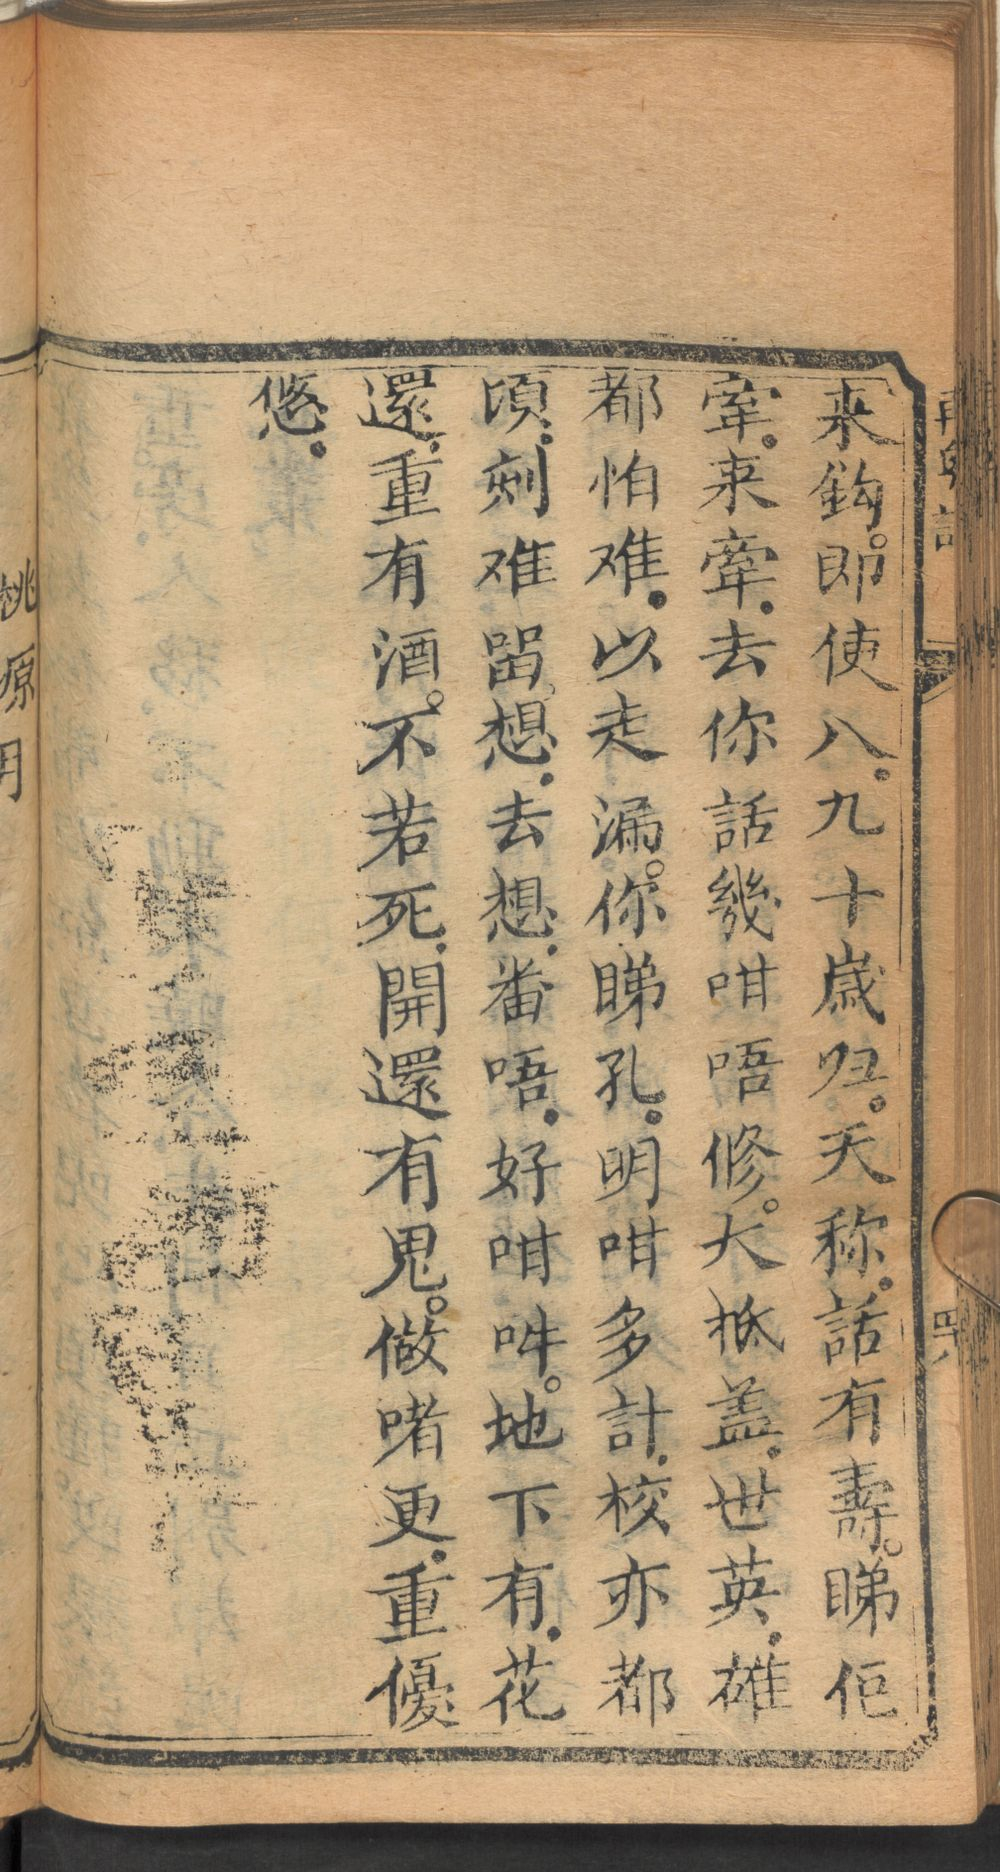 来鈎。即使八。九十歲归。天称。話有壽。睇佢
牽。来牽。去你話幾咁唔修。大抵盖。世英。雄
都怕难。以走漏。你睇孔。明咁多計。校亦都
頃。刻难畱。想。去想。番唔。好咁吽。地下有。花
還。重有酒。不若死。開還有鬼。做啫更。重優
悠。
桃原明